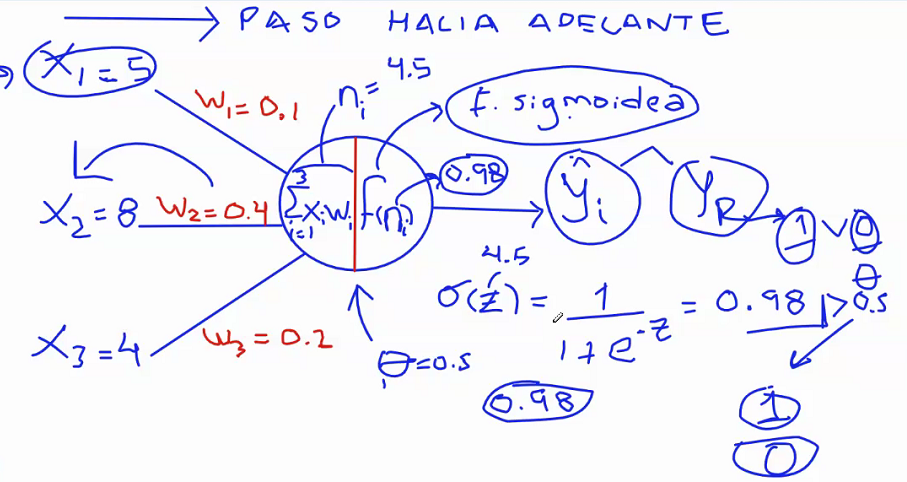 → PASO HALIA ADELANTE
X₁ = 5
W₁ = 0.1
nᵢ = 4.5
f. sigmoidea
0.98
X₂ = 8
W₂ = 0.4
3
Σ xᵢ wᵢ
i=1
f(nᵢ)
ŷᵢ
y_R
1 ∨ 0
4.5
θ
σ(z) = 1 / (1 + e^-z) = 0.98 > 0.5
X₃ = 4
W₃ = 0.2
θ = 0.5
0.98
1
0